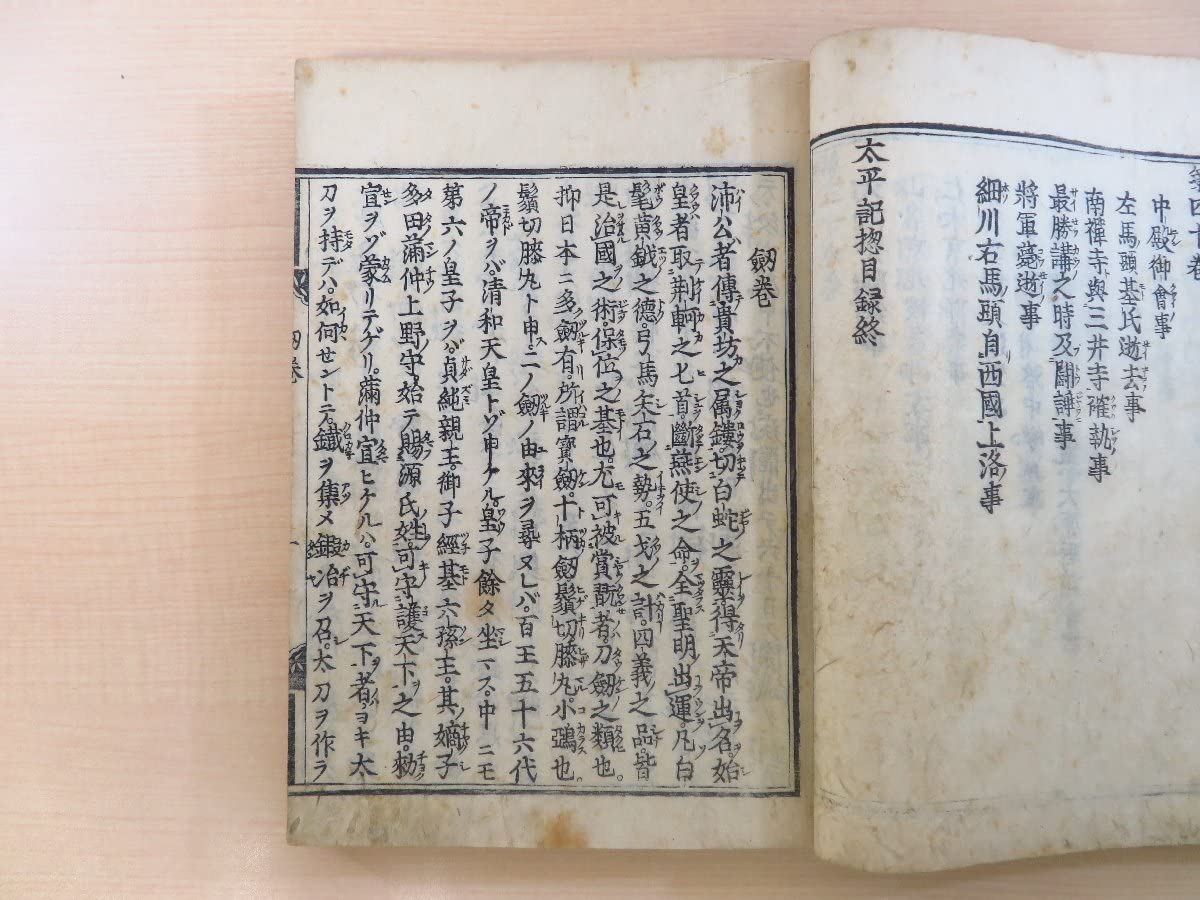 第四十巻
中殿御會事
左馬頭基氏逝去事
南禪寺與三井寺確執事
最勝講之時及闘諍事
將軍薨逝事
細川右馬頭自西國上洛事
太平記惣目録終
劔巻
沛公者傳貴坊之属鏤。切白蛇之靈得天帝出名。始
皇者取荆軻之匕首。斷燕使之命。全聖明出運。凡白
髦黄鉞之德。弓馬矢石之勢。五戈之計。四義之品。皆
是治國之術。保位之基也。尤可被賞翫者。刀劔之類也。
抑日本ニ多劔有。所謂寳劔。十柄劔鬚切膝丸。小鵄也
鬚切膝丸ト申ス二ノ劔ノ由來ヲ尋ヌレバ。百王五十六代
ノ帝ヲバ。清和天皇トゾ申ケル。皇子餘タ坐マス。中ニモ
第六ノ皇子ヲバ。貞純親王。御子經基六孫王。其ノ嫡子
多田滿仲上野守。始テ賜源氏姓。可守護天下之由。勅
宣ヲゾ蒙リテゲリ。滿仲宣ヒケルハ。可守天下者。ヨキ太
刀ヲ持デハ。如何セントテ。鐵ヲ集メ鍛冶ヲ召。太刀ヲ作ラ